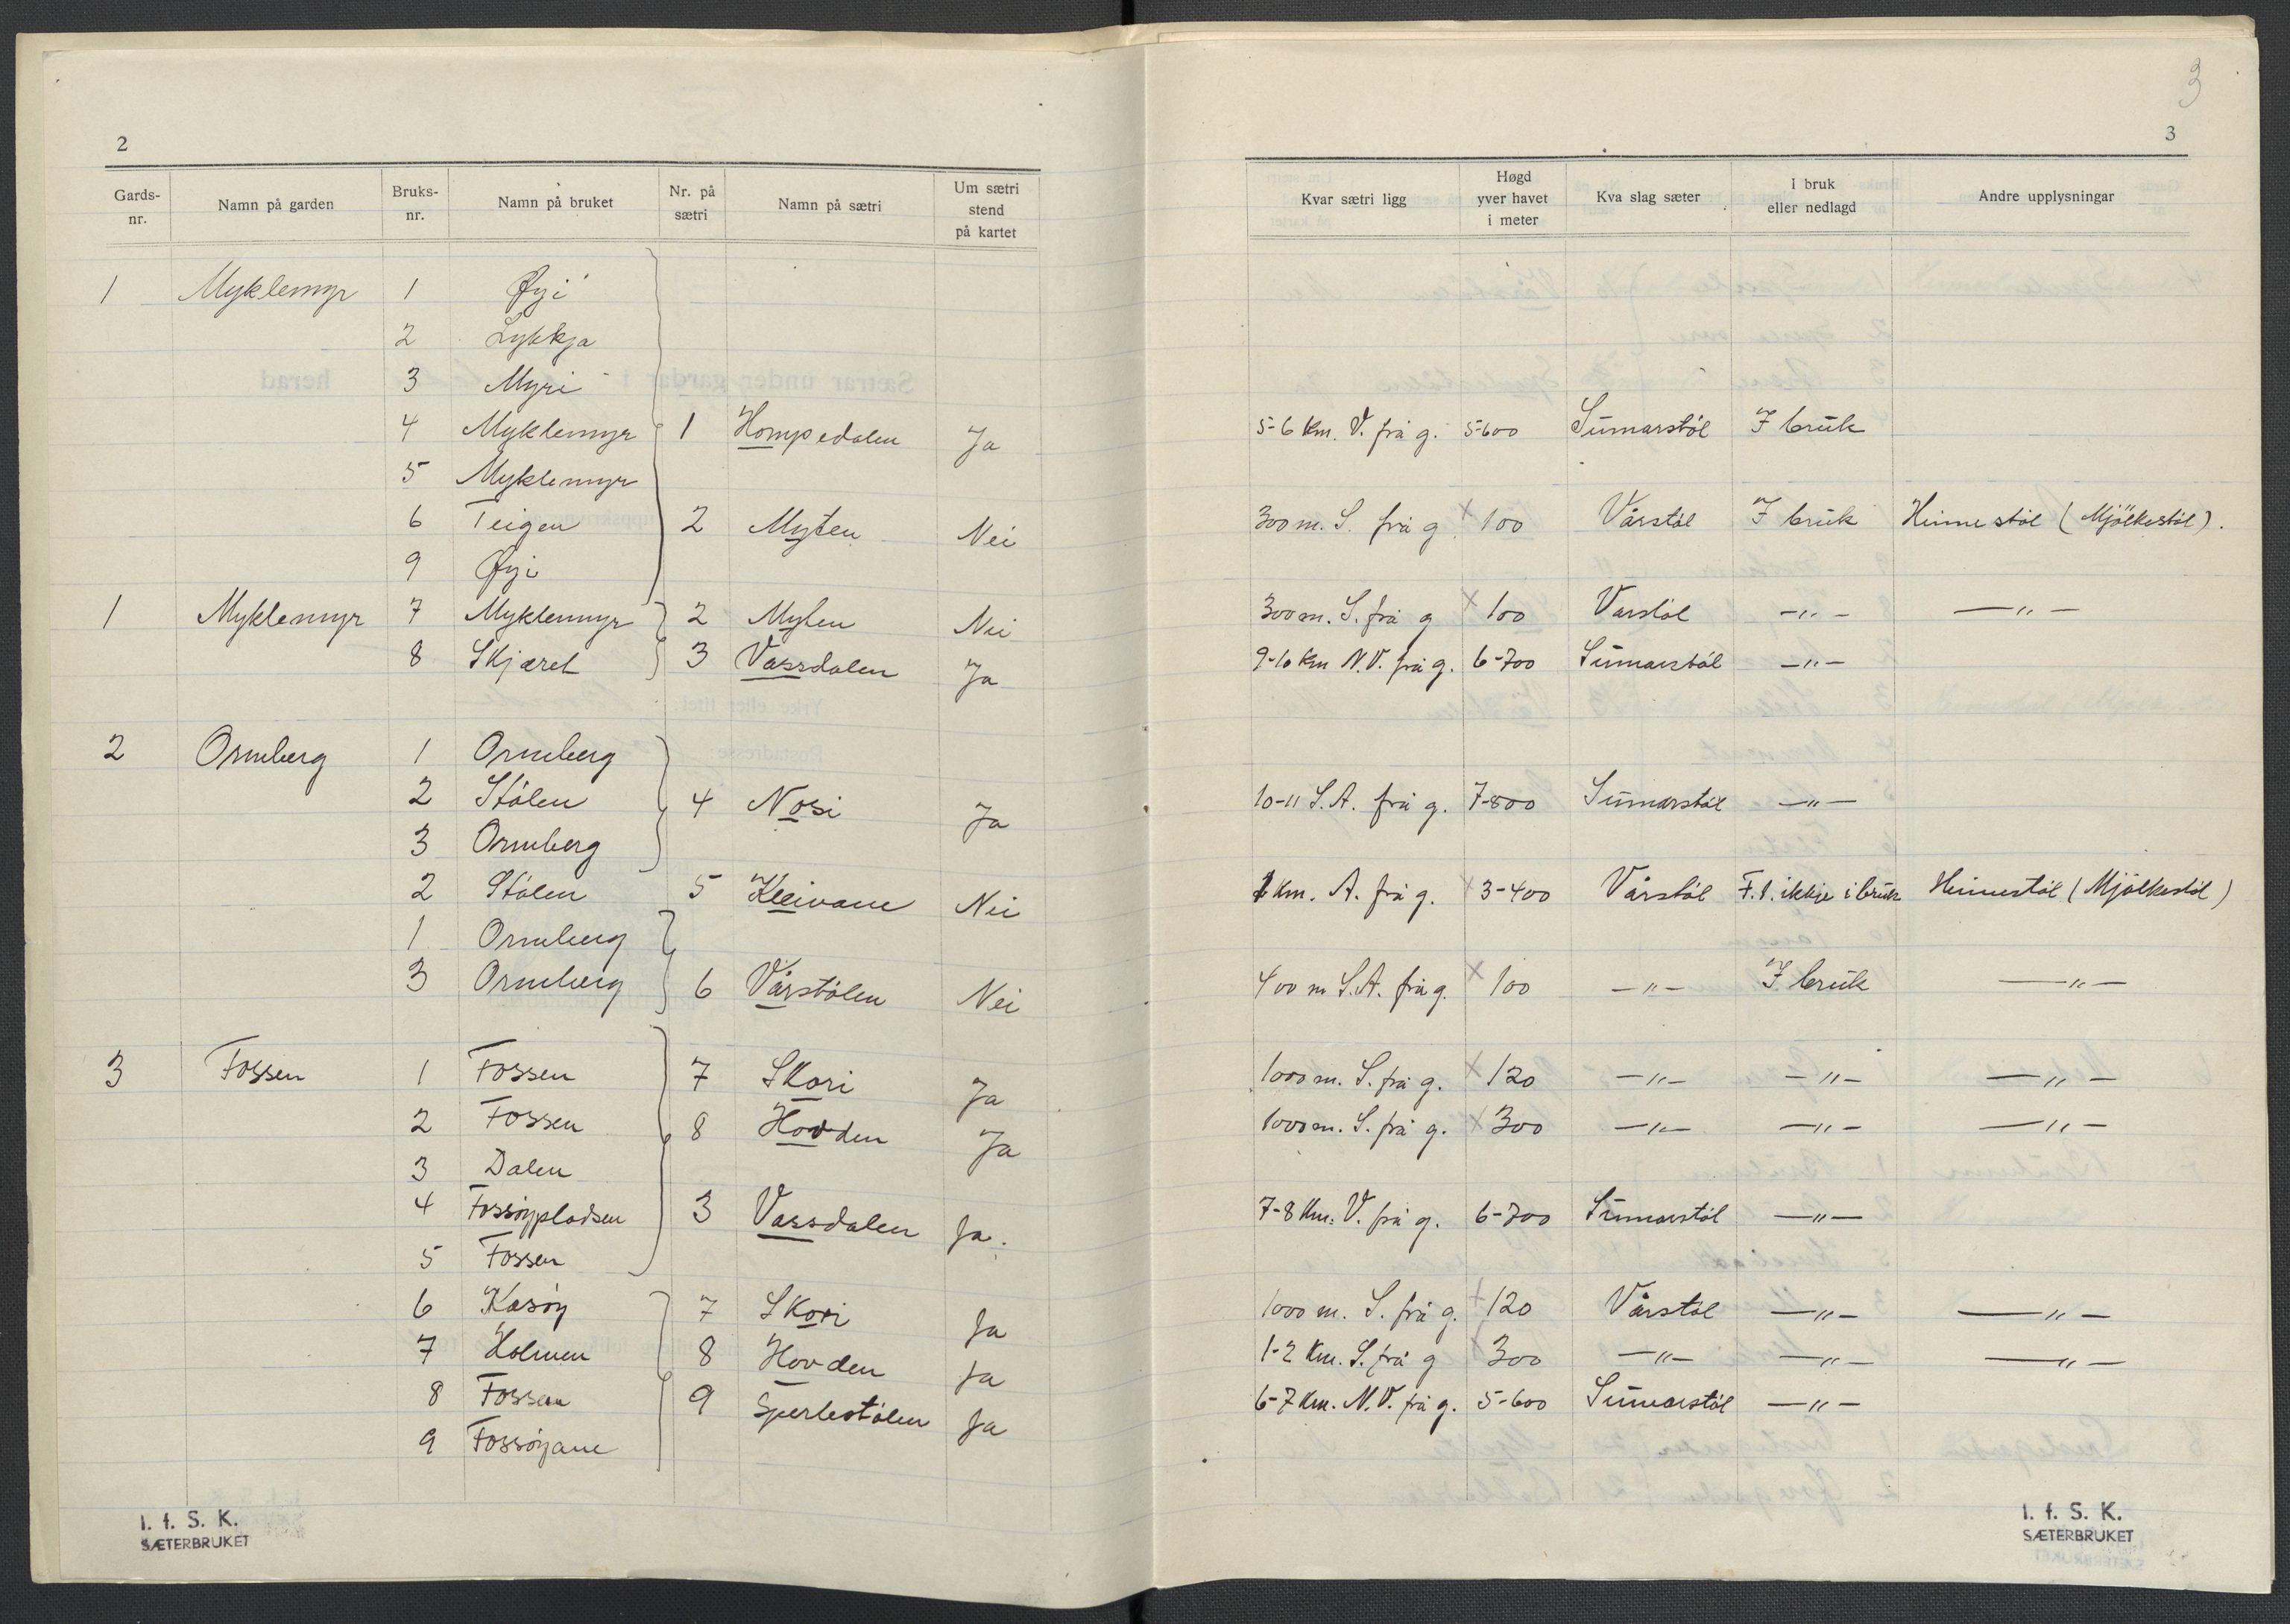 2
Gards-nr. | Namn på garden | Bruks-nr. | Namn på bruket | Nr. på sætri | Namn på sætri | Um sætri stend på kartet
1 Myklemyr 1 Øyi
2 Lykkja
3 Myri
4 Myklemyr 1 Hompedalen Ja
5 Myklemyr
6 Teigen 2 Myten Nei
9 Øyi
1 Myklemyr 7 Myklemyr 2 Myten Nei
8 Skjæret 3 Vassdalen Ja
2 Ormberg 1 Ormberg
2 Stölen 4 Nosi Ja
3 Ormberg
2 Stölen 5 Kleivane Nei
1 Ormberg
3 Ormberg 6 Vårstölen Nei
3 Fossen 1 Fossen 7 Skori Ja
2 Fossen 8 Hovden Ja
3 Dalen
4 Fossöypladsen 3 Vassdalen Ja.
5 Fossen
6 Kasöy 7 Skori Ja
7 Holmen 8 Hovden Ja
8 Fossen 9 Sperlestölen Ja
9 Fossöyane
I. f. S. K.
SÆTERBRUKET
3
3
Kvar sætri ligg | Høgd yver havet i meter | Kva slag sæter | I bruk eller nedlagd | Andre upplysningar
5-6 Km. V. frå g. 5-600 Sumarstöl I bruk
300 m. S. frå g x 100 Vårstöl I bruk Heimestöl (Mjölkestöl).
300 m. S. frå g x 100 Vårstöl -"- -"-
9-10 Km N.V. frå g. 6-700 Sumarstöl -"-
10-11 S.A. frå g. 7-800 Sumarstöl -"-
1 Km. A. frå g. x 3-400 Vårstöl F.t. ikkje i bruk Heimestöl (Mjölkestöl)
400 m S.A. frå g. x 100 -"- I bruk -"-
1000 m. S. frå g. x 120 -"- -"- -"-
1000 m. S. frå g. x 300 -"- -"- -"-
7-8 Km. V. frå g. 6-700 Sumarstöl -"-
1000 m. S. frå g. x 120 Vårstöl -"- -"-
1-2 Km. S. frå g x 300 -"- -"- -"-
6-7 Km. N.V. frå g. 5-600 Sumarstöl -"-
I. f. S. K.
SÆTERBRUKET